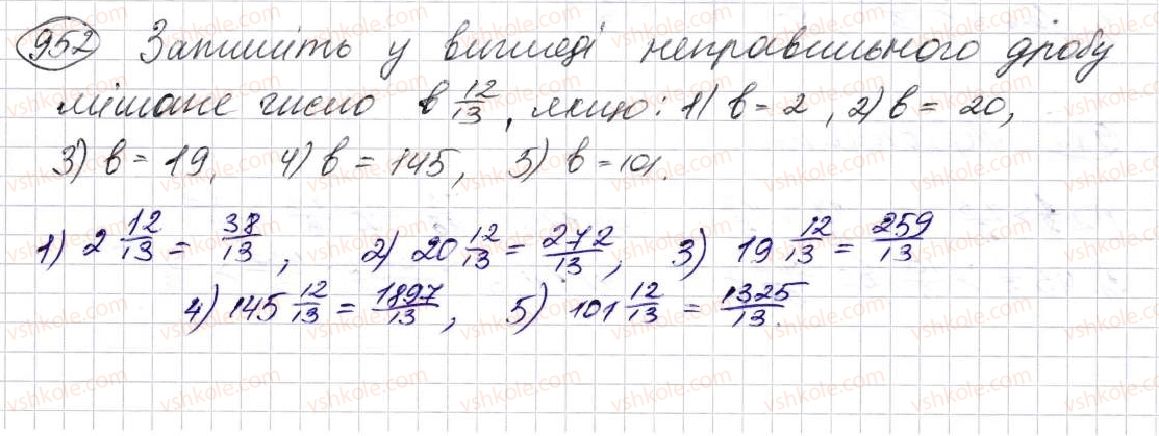 952 Запишіть у вигляді неправильного дробу
мішане число b 12/13, якщо: 1) b = 2, 2) b = 20,
3) b = 19, 4) b = 145, 5) b = 101.
1) 2 12/13 = 38/13, 2) 20 12/13 = 272/13, 3) 19 12/13 = 259/13
4) 145 12/13 = 1897/13, 5) 101 12/13 = 1325/13.